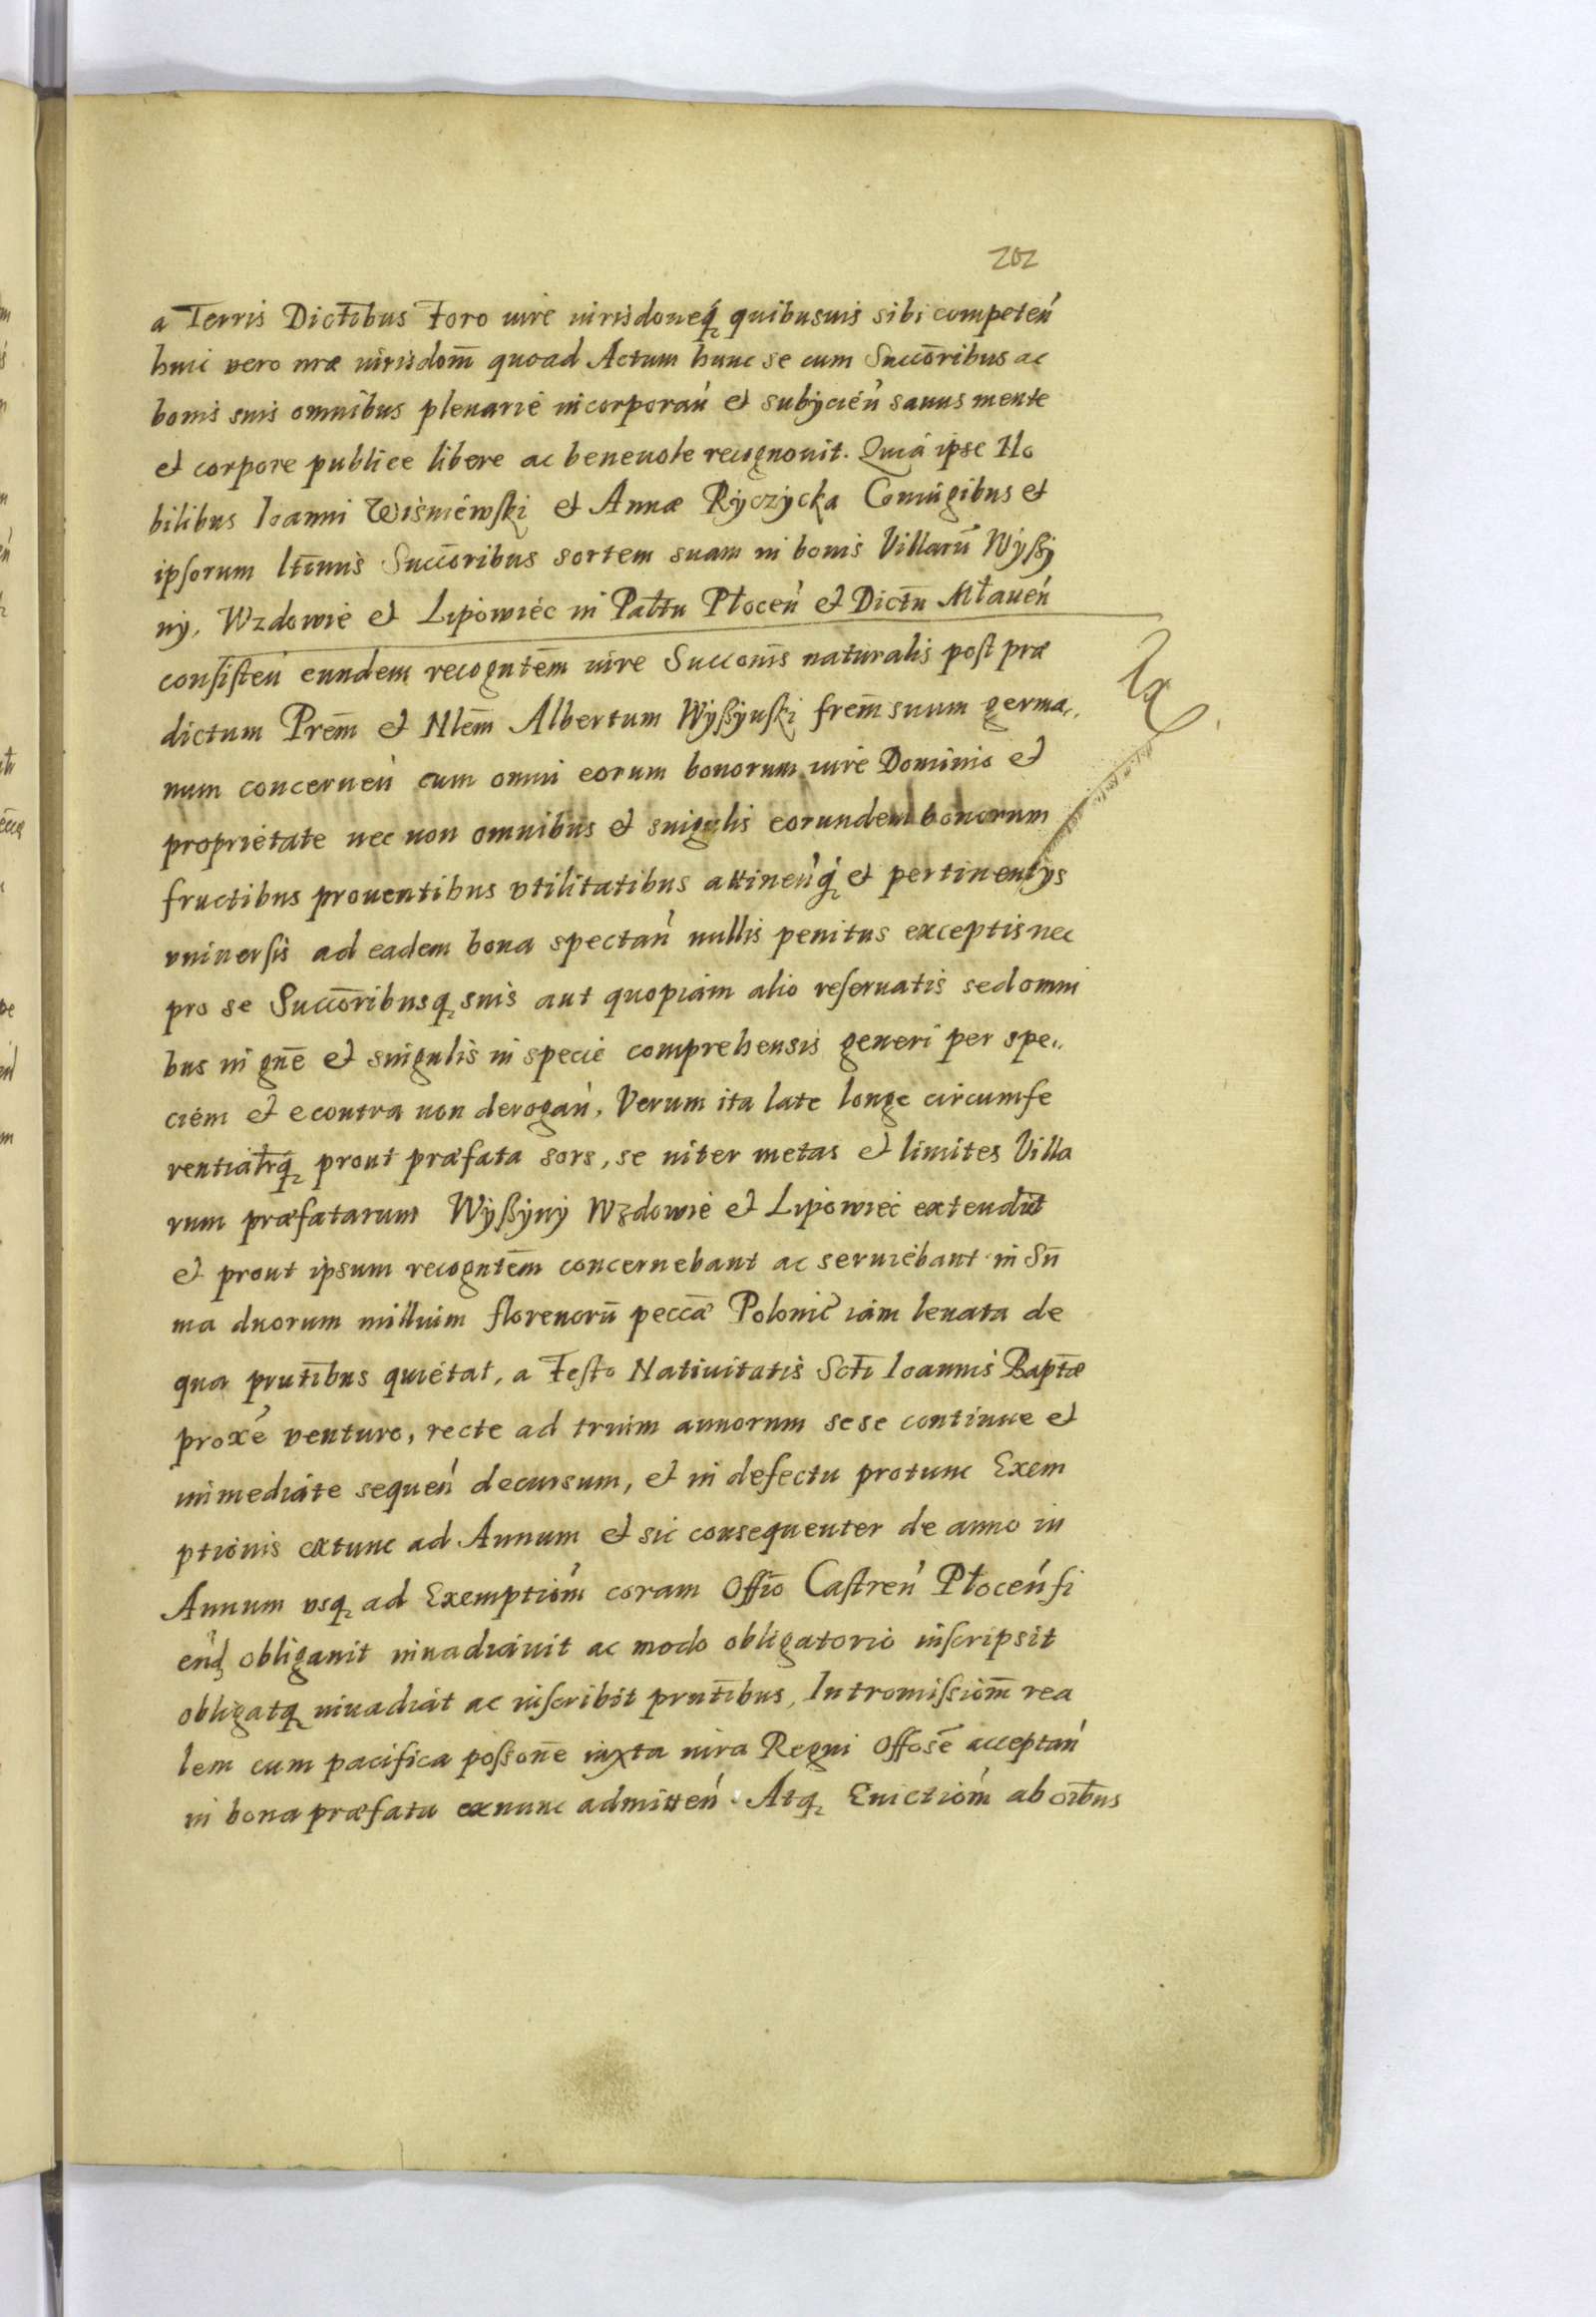 202
a Terris Dictibus Foro iure iurisdoneq̃ quibusuis sibi competeń
huic vero nræ iurisdom̃ quoad Actum hunc se cum Succōribus ac
bonis suis omnibus plenarie incorporań et subycień sanus mente
et corpore publice libere ac beneuole recognouit. Quia ipse No
bilibus Ioanni Wiśniewski et Annæ Ryczycka Coniugibus et
ipsorum ltīmis Succōribus sortem suam in bonis Villarū Wyßy
ny, Wzdowie et Lipowiec in Pałtu Płoceń et Dictū Mławeń
consisteń eundem recogntēm iure Succonīs naturalis post præ
dictum Prēm et Nlēm Albertum Wyßynski frēm suum germa,,
num concerneń cum omni eorum bonorum iure Dominio et
proprietate nec non omnibus et singulis eorundem bonorum
fructibus prouentibus vtilitatibus attineńq́ et pertinentys
vniuersis ad eadem bona spectań nullis penitus exceptis nec
pro se Succōribusq suis aut quopiam alio reseruatis sed omni
bus in gnē et singulis in specie comprehensis generi per spe,,
ciem et econtra non derogań, Verum ita late longe circumfe
rentialrq́ prout præfata sors, se inter metas et limites Villa
rum præfatarum Wyßyny Wzdowie et Lipowiec extendit
et prout ipsum recogntēm concernebant ac seruiebant in Sū
ma duorum millium florenorū peccæ Polonic̃ iam leuata de
qua prntībus quietat, a Festo Natiuitatis Sctī Ioannis Baptæ
proxé venturo, recte ad trium annorum sese continue et
immediate sequeń decursum, et in defectu protunc Exem
ptionis extunc ad Annum et sic consequenter de anno in
Annum vsq ad Exemptiom̃ coram Offīo Castreń Płoceńfi
eńd obligauit inuadiauit ac modo obligatorio inscripsit
obligatq inuadiat ac inscribit prntībus, Intromissiom̃ rea
lem cum pacifica possonē iuxta iura Regni Offosē acceptań
in bona præfata exnunc admitteń. Atq Euictiom̃ ab oībus